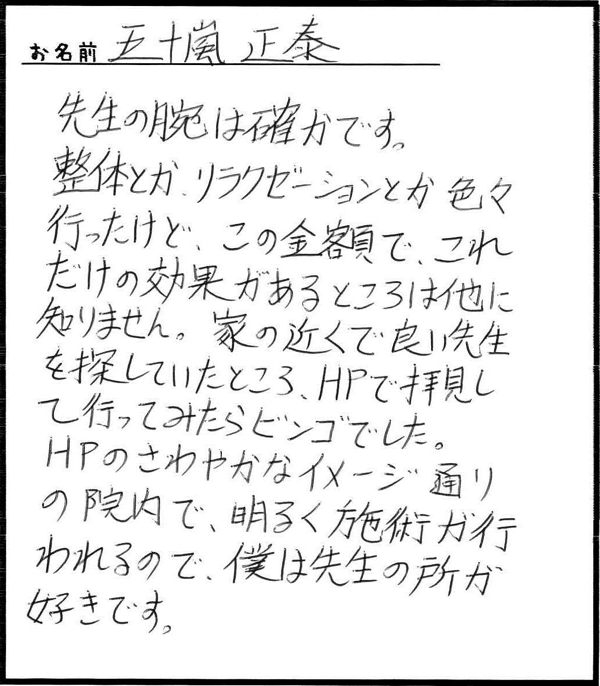 お名前 五十嵐 正泰
先生の腕は確かです。
整体とか、リラクゼーションとか 色々
行ったけど、この金額で、これ
だけの効果があるところは他に
知りません。家の近くで良い先生
を探していたところ、HPで拝見し
て行ってみたらビンゴでした。
HPのさわやかなイメージ通り
の院内で、明るく施術が行
われるので、僕は先生の所が
好きです。